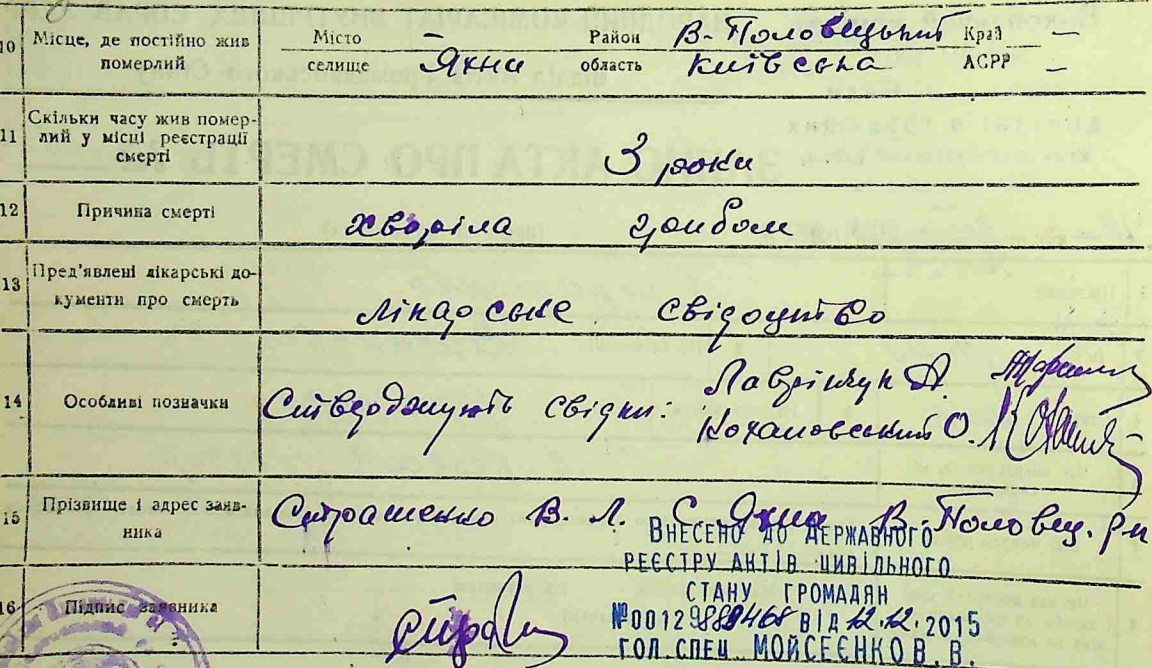 10 Місце, де постійно жив померлий Місто селище Яхни Район В-Половецький область Київська Край — АСРР —
11 Скільки часу жив померлий у місці реєстрації смерті 3 роки
12 Причина смерті хворіла грибом
13 Пред'явлені лікарські документи про смерть лікарське свідоцтво
14 Особливі позначки Стверджують свідки: Лаврінчук А.
Кохановський О.
15 Прізвище і адрес заявника Страшенко В. Л. С Яхни В-Половец. р-н
ВНЕСЕНО ДО ДЕРЖАВНОГО
РЕЄСТРУ АКТІВ ЦИВІЛЬНОГО
СТАНУ ГРОМАДЯН
16 Підпис заявника
№00129889468 ВІД 12.12.2015
ГОЛ.СПЕЦ. МОЙСЕЄНКО В. В.